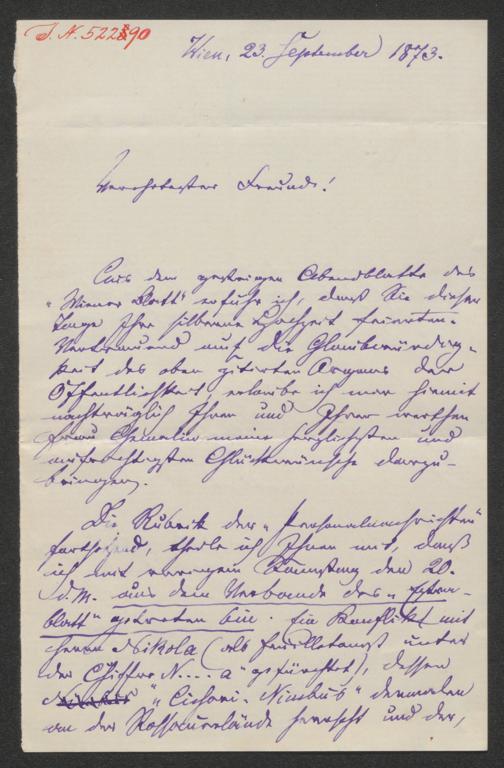 J. N. 522890
Wien, 23. September 1873.
Verehrtester Freund!
Aus dem gestrigen Abendblatte des
"Wiener Blatt" erfuhr ich, daß Sie dieser
Tage Ihre silberne Hochzeit feierten.
Vertrauend auf die Glaubwürdig-
keit des oben zitirten Organes der
Öffentlichkeit erlaube ich mir hiemit
nachträglich Ihnen und Ihrer werthen
Frau Gemalin meine herzlichsten und
aufrichtigsten Glückwünsche darzu-
bringen.
Die Rubrik der "Personalnachrichten"
fortsetzend, theile ich Ihnen mit, daß
ich mit vorigem Samstag den 20.
d. M. aus dem Verbande des "Extra-
blatt" getreten bin. Ein Konflikt mit
Herrn Nikola (als Feuilletonist unter
der Chiffre N....a gefürchtet), dessen
" - Nimbus" dermalen
an der Rossauerlände herrscht und der,